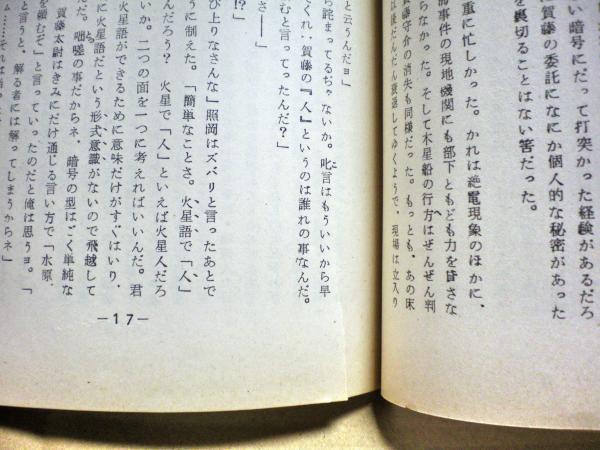 い暗号にだって打突かった経験があるだろ
賀藤の委託になにか個人的な秘密があった
を裏切ることはない筈だった。
重に忙しかった。かれは絶電現象のほかに、
事件の現地機関にも部下ともども力を さな
らなかった。そして木星船の行方はぜんぜん判
賀藤守介の消失も同様だった。もっとも、あの床
以後だんだん衰退してゆくようで、現場は立入り
と云うんだョ」
ら詰まってるぢゃないか。叱言はもういいから早
くれ‥賀藤の『人』というのは誰れの事なんだ。
むと言ってったんだ？」
さ――」
!?」
び上りなさんな」照岡はズバリと言ったあとで
うに制えた。「簡単なことさ。火星語で「人」
んだろう？　火星で「人」といえば火星人だろ
いか。二つの面を一つに考えればいいんだ。君
火星語ができるために意味だけがすぐはいり、
に火星語だという形式意識がないので飛越して
だ。咄嗟の事だからネ、暗号の型はごく単純な
賀藤大尉はきみにだけ通じる言い方で「水原、
を頼むぞ」と言っていったのだと俺は思うョ。「
と言うと、解る者には解ってしまうからネ」
……それは
—17—